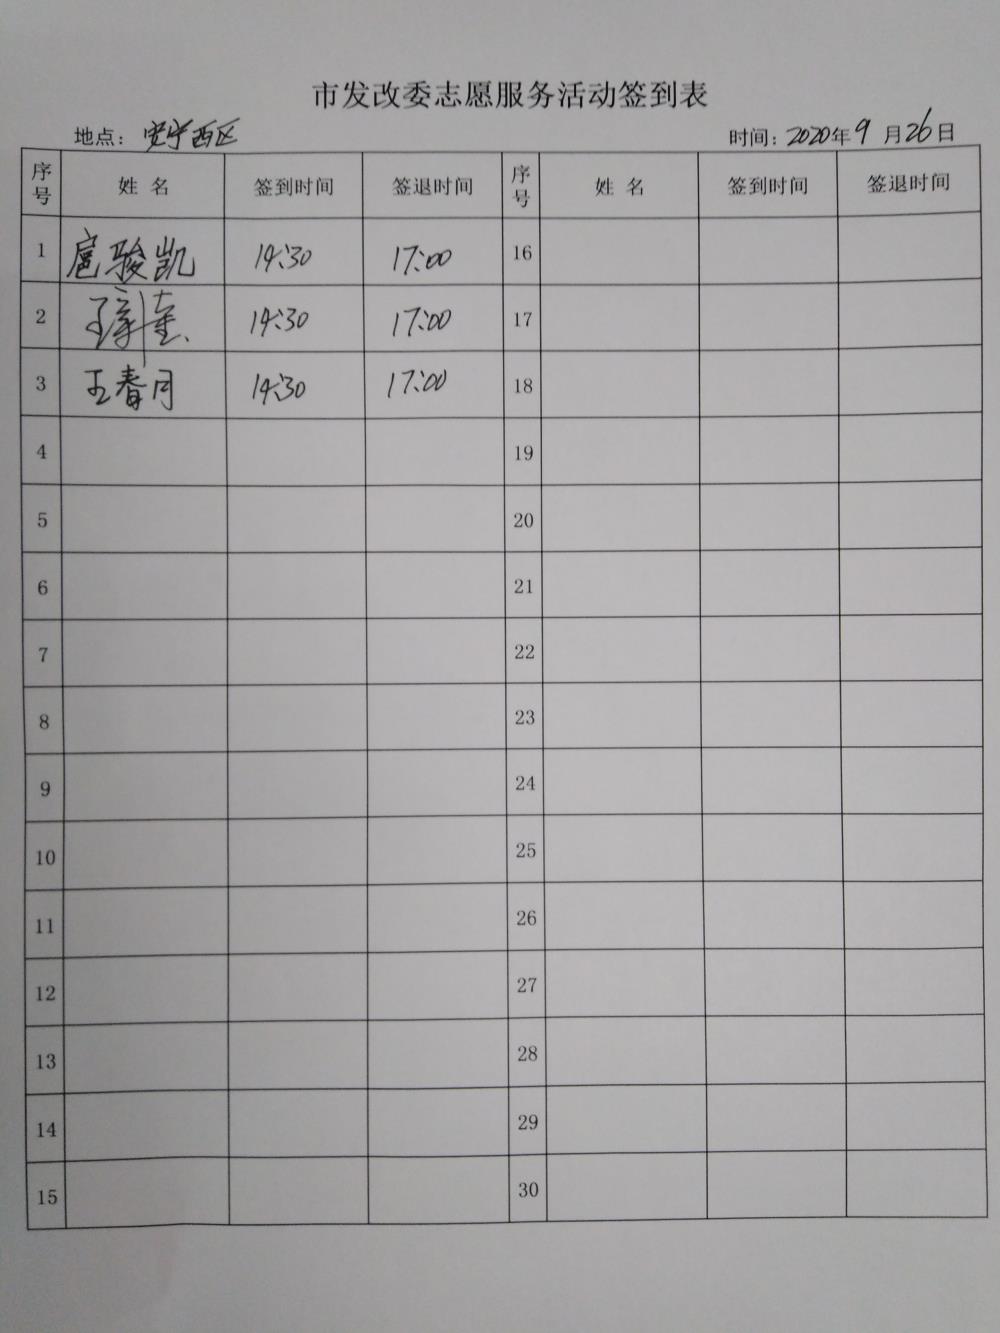 市发改委志愿服务活动签到表
地点：安宁西区 时间：2020年9月26日
序号 姓名 签到时间 签退时间 序号 姓名 签到时间 签退时间
1 扈骏凯 14:30 17:00 16
2 14:30 17:00 17
3 王春月 14:30 17:00 18
4 19
5 20
6 21
7 22
8 23
9 24
10 25
11 26
12 27
13 28
14 29
15 30